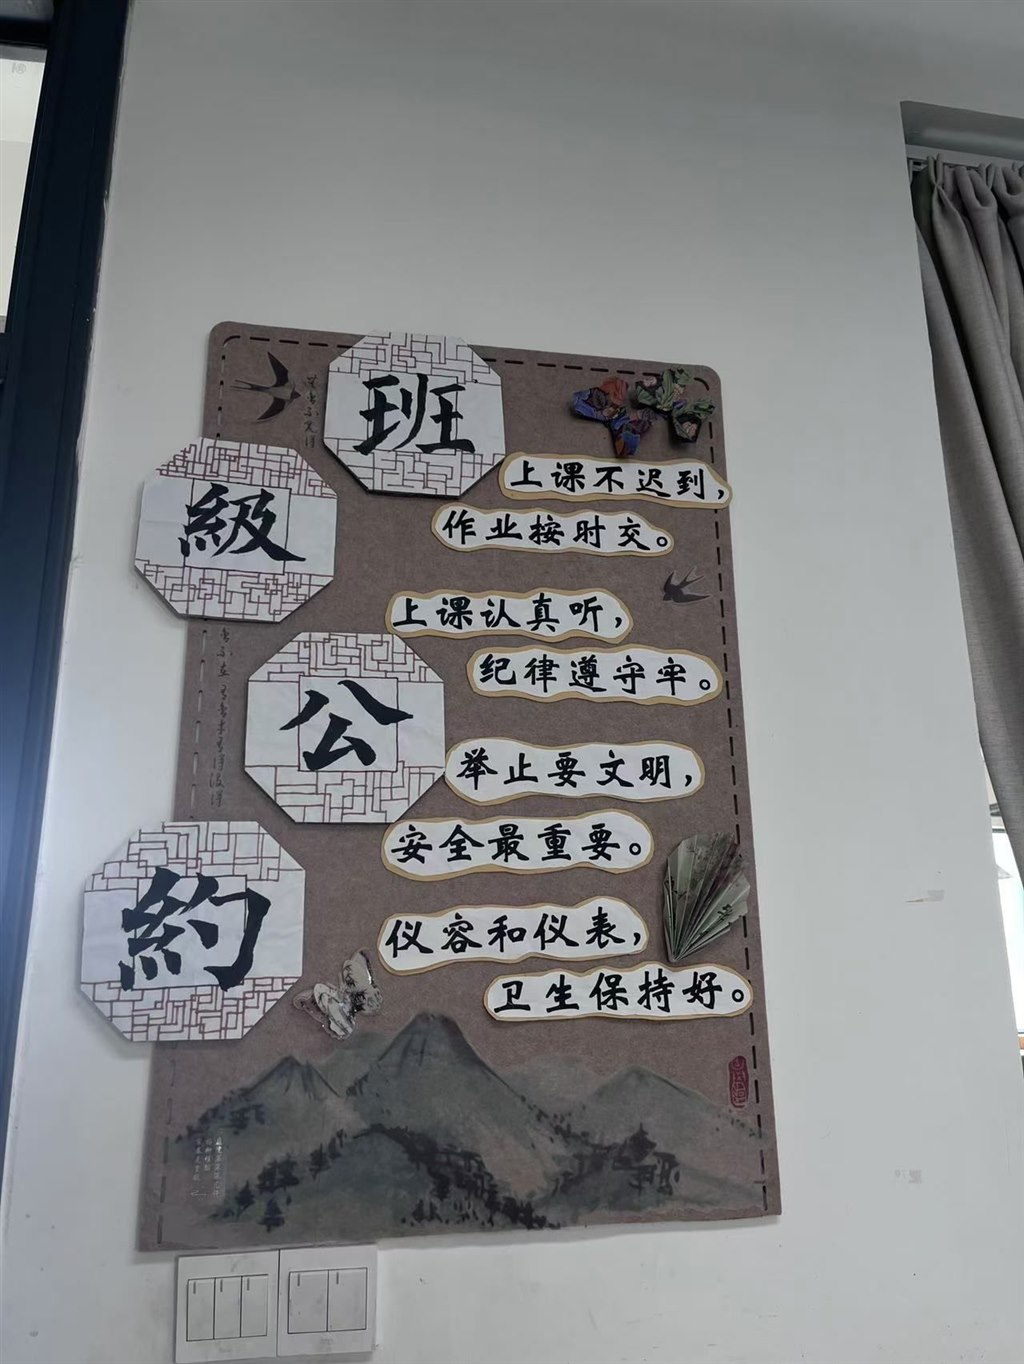 班
級
公
約
上课不迟到，
作业按时交。
上课认真听，
纪律遵守牢。
举止要文明，
安全最重要。
仪容和仪表，
卫生保持好。